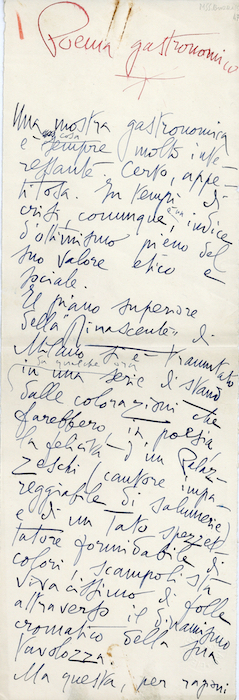 Poema gastronomico
Una mostra gastronomica
è sempre cosa molto inte-
ressante. Certo, appe-
titosa. In tempi di
crisi, comunque, è un indice
d'ottimismo pieno del
suo valore etico e
sociale.
Il piano superiore
della Rinascente di
Milano si è tramutato
in qualche ora
in una serie di stand
dalle colorazioni che
farebbero in poesia
la felicità d'un Palaz-
zeschi (cantore impa-
reggiabile di salumerie)
e di un Tato spezzet-
tatore formidabile di
colori scampoli sta
vivacissimo di folle
attraverso il dinamismo
cromatico della sua
tavolozza.
Ma questa, per razioni